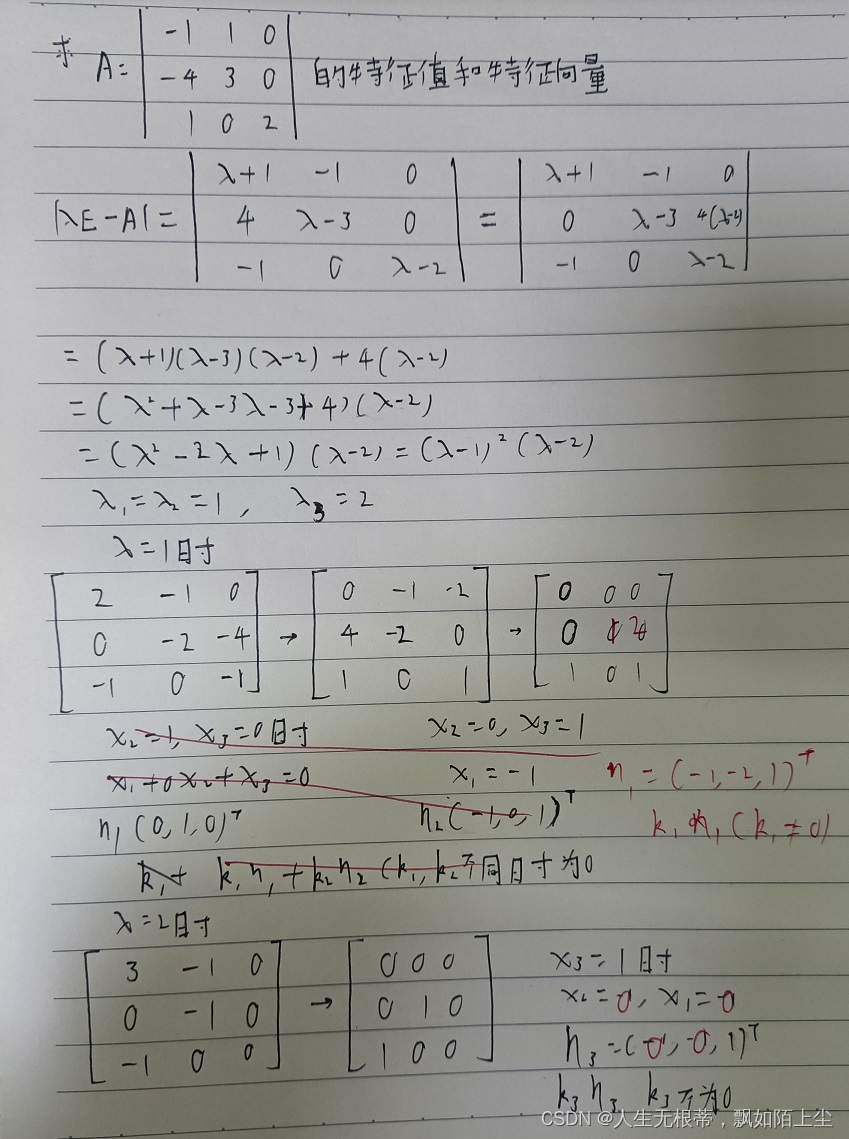 求 A= | -1 1 0 | 的特征值和特征向量
| -4 3 0 |
| 1 0 2 |
|λE-A| = | λ+1 -1 0 | = | λ+1 -1 0 |
| 4 λ-3 0 | | 0 λ-3 4(λ-2) |
| -1 0 λ-2 | | -1 0 λ-2 |
= (λ+1)(λ-3)(λ-2) + 4(λ-2)
= (λ²+λ-3λ-3+4)(λ-2)
= (λ²-2λ+1)(λ-2) = (λ-1)²(λ-2)
λ₁=λ₂=1, λ₃=2
λ=1时
[ 2 -1 0 ] → [ 0 -1 -2 ] → [ 0 0 0 ]
[ 0 -2 -4 ] [ 4 -2 0 ] [ 0 1 2 ]
[ -1 0 -1 ] [ 1 0 1 ] [ 1 0 1 ]
x₂=1, x₃=0时 x₂=0, x₃=1
x₁+0x₂+x₃=0 x₁=-1 η₁=(-1,-2,1)ᵀ
η₁(0,1,0)ᵀ η₂(-1,0,1)ᵀ k₁η₁(k₁≠0)
k₁+ k₁η₁+k₂η₂(k₁,k₂不同时为0
λ=2时
[ 3 -1 0 ] → [ 0 0 0 ] x₃=1时
[ 0 -1 0 ] [ 0 1 0 ] x₂=0, x₁=0
[ -1 0 0 ] [ 1 0 0 ] η₃=(0,0,1)ᵀ
k₃η₃ k₃不为0
CSDN @人生无根蒂，飘如陌上尘